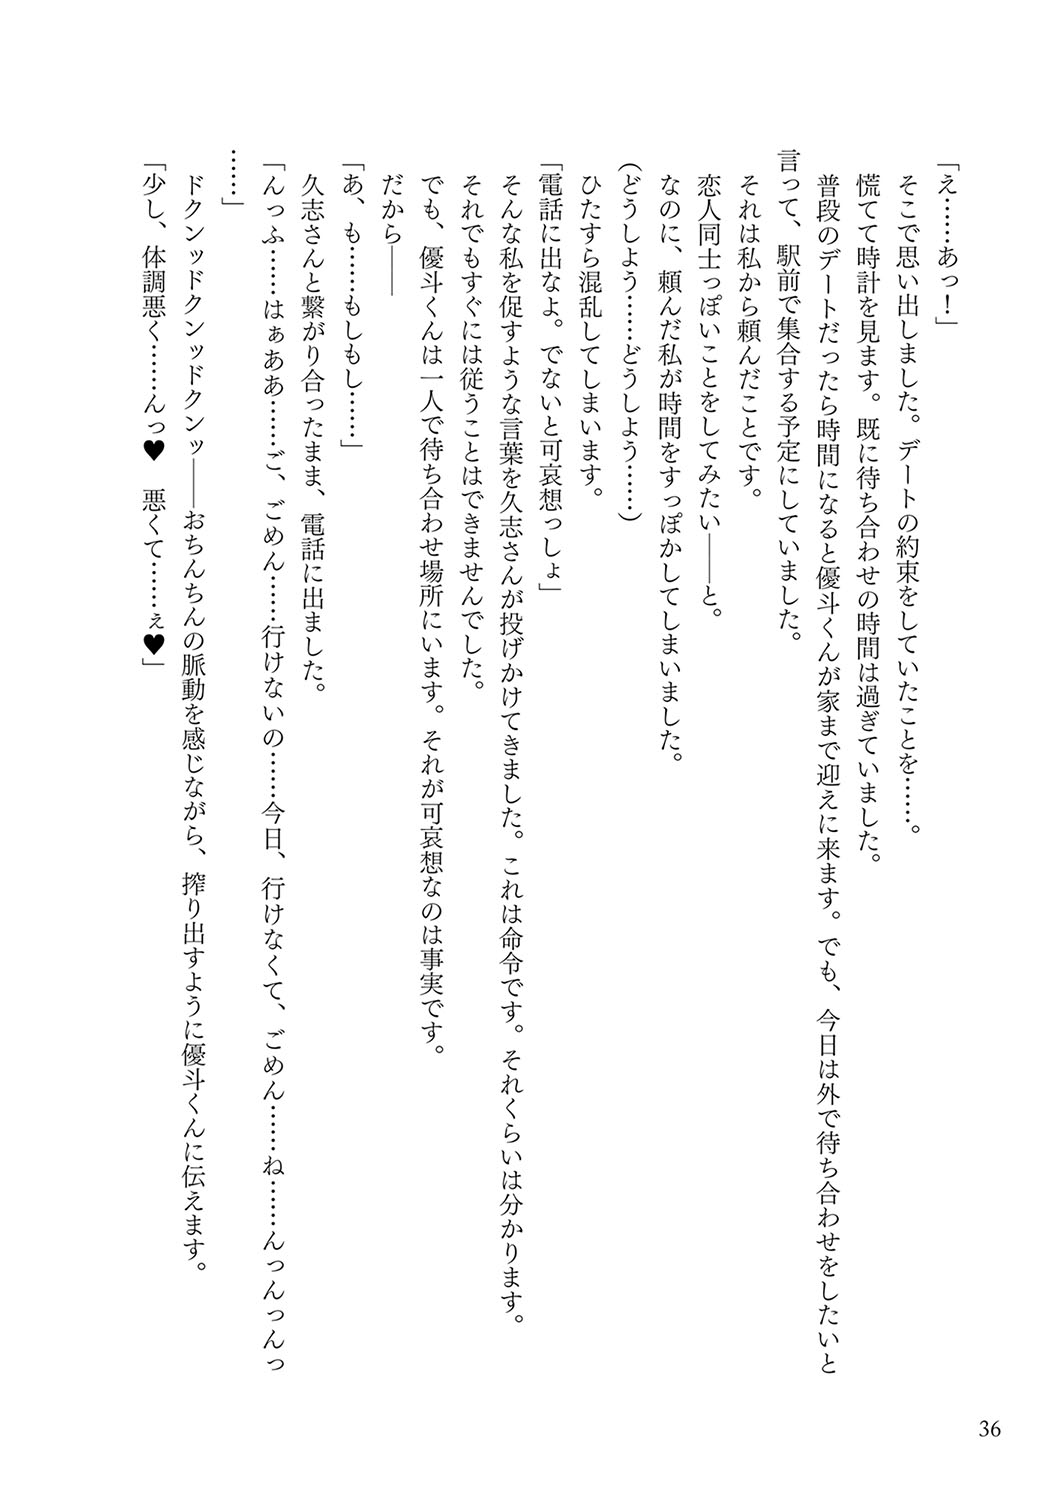 「え……あっ！」
そこで思い出しました。デートの約束をしていたことを……。
慌てて時計を見ます。既に待ち合わせの時間は過ぎていました。
普段のデートだったら時間になると優斗くんが家まで迎えに来ます。でも、今日は外で待ち合わせをしたいと
言って、駅前で集合する予定にしていました。
それは私から頼んだことです。
恋人同士っぽいことをしてみたい――と。
なのに、頼んだ私が時間をすっぽかしてしまいました。
（どうしよう……どうしよう……）
ひたすら混乱してしまいます。
「電話に出なよ。でないと可哀想っしょ」
そんな私を促すような言葉を久志さんが投げかけてきました。これは命令です。それくらいは分かります。
それでもすぐには従うことはできませんでした。
でも、優斗くんは一人で待ち合わせ場所にいます。それが可哀想なのは事実です。
だから――
「あ、も……もしもし……」
久志さんと繋がり合ったまま、電話に出ました。
「んっふ……はぁああ……ご、ごめん……行けないの……今日、行けなくて、ごめん……ね……んっんっんっ
……」
ドクンッドクンッドクンッ――おちんちんの脈動を感じながら、搾り出すように優斗くんに伝えます。
「少し、体調悪く……んっ♥　悪くて……ぇ♥」
36